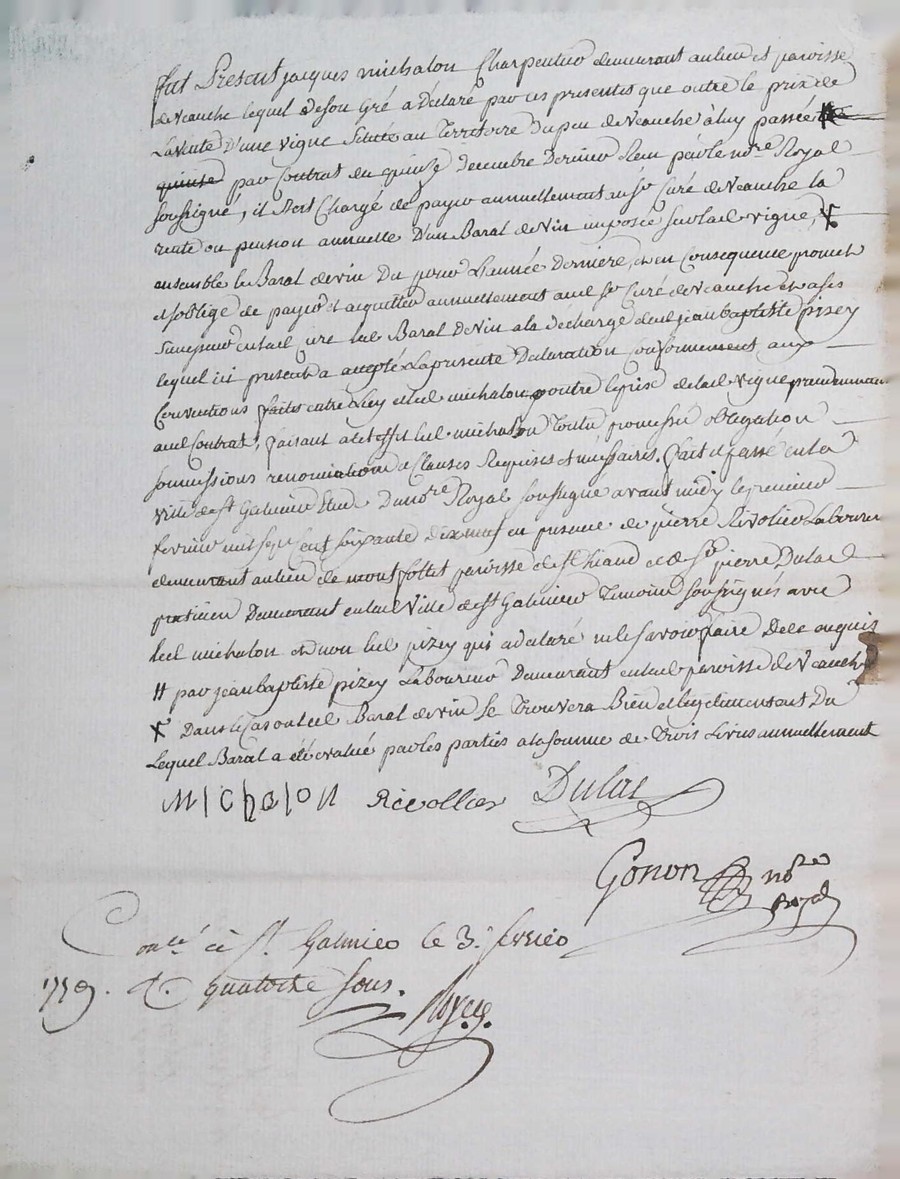 fut Present jacques michalon Charpentier demeurant au lieu et paroisse
de Veauche lequel de son Gré a declaré par ces presentes que outre le prix de
La vente d'une vigne Scituée au Territoire du peu de Veauche à luy passée #
quinze par Contrat du quinze Decembre dernier Reçu par le nore Royal
soussigné, il s'est Chargé de payer annuellement au sr Curé de Veauche la
rente ou pension annuelle D'un Baral de vin imposée sur lad vigne, X
ensemble le Baral de vin Du pour L'année Derniere, et en Consequence promet
et s'oblige de payer et acquitter annuellement aud sr Curé de Veauche et a ses
Successeurs en lad cure led Baral de vin a la decharge dud jean baptiste pizey
lequel ici present a accepté La presente Declaration Conformement aux
Conventions faites entre Luy et led michalon outre le prix de lad vigne
aud Contrat, faisant a cet effet led michalon Toutes promesses obligations
soumissions renonciations et Clauses Requises et necessaires. fait et passé en la
ville de st Galmier Etude du nore Royal soussigné avant midy le premier
fevrier mil sept Cent soixante dix neuf en presence de pierre Rivolier Laboureur
demeurant au lieu de montfollet paroisse de st et de sr pierre Dulac
praticien Demeurant en lad Ville de st Galmier Temoins soussignés avec
led michalon et non led pizey qui a declaré ne le sçavoir faire De ce enquis
# par jean baptiste pizey Laboureur Demeurant en lad paroisse de Veauche
X Dans le cas ou led Baral de vin se Trouvera Bien et legitimement Du
Lequel Baral a été evalué par les parties a la somme de Trois Livres annuellement
Michalon Rivollier Dulac
Gonon nore
Royal
Conlé à st Galmier le 3. fevrier
1779. R. quatorze sous.